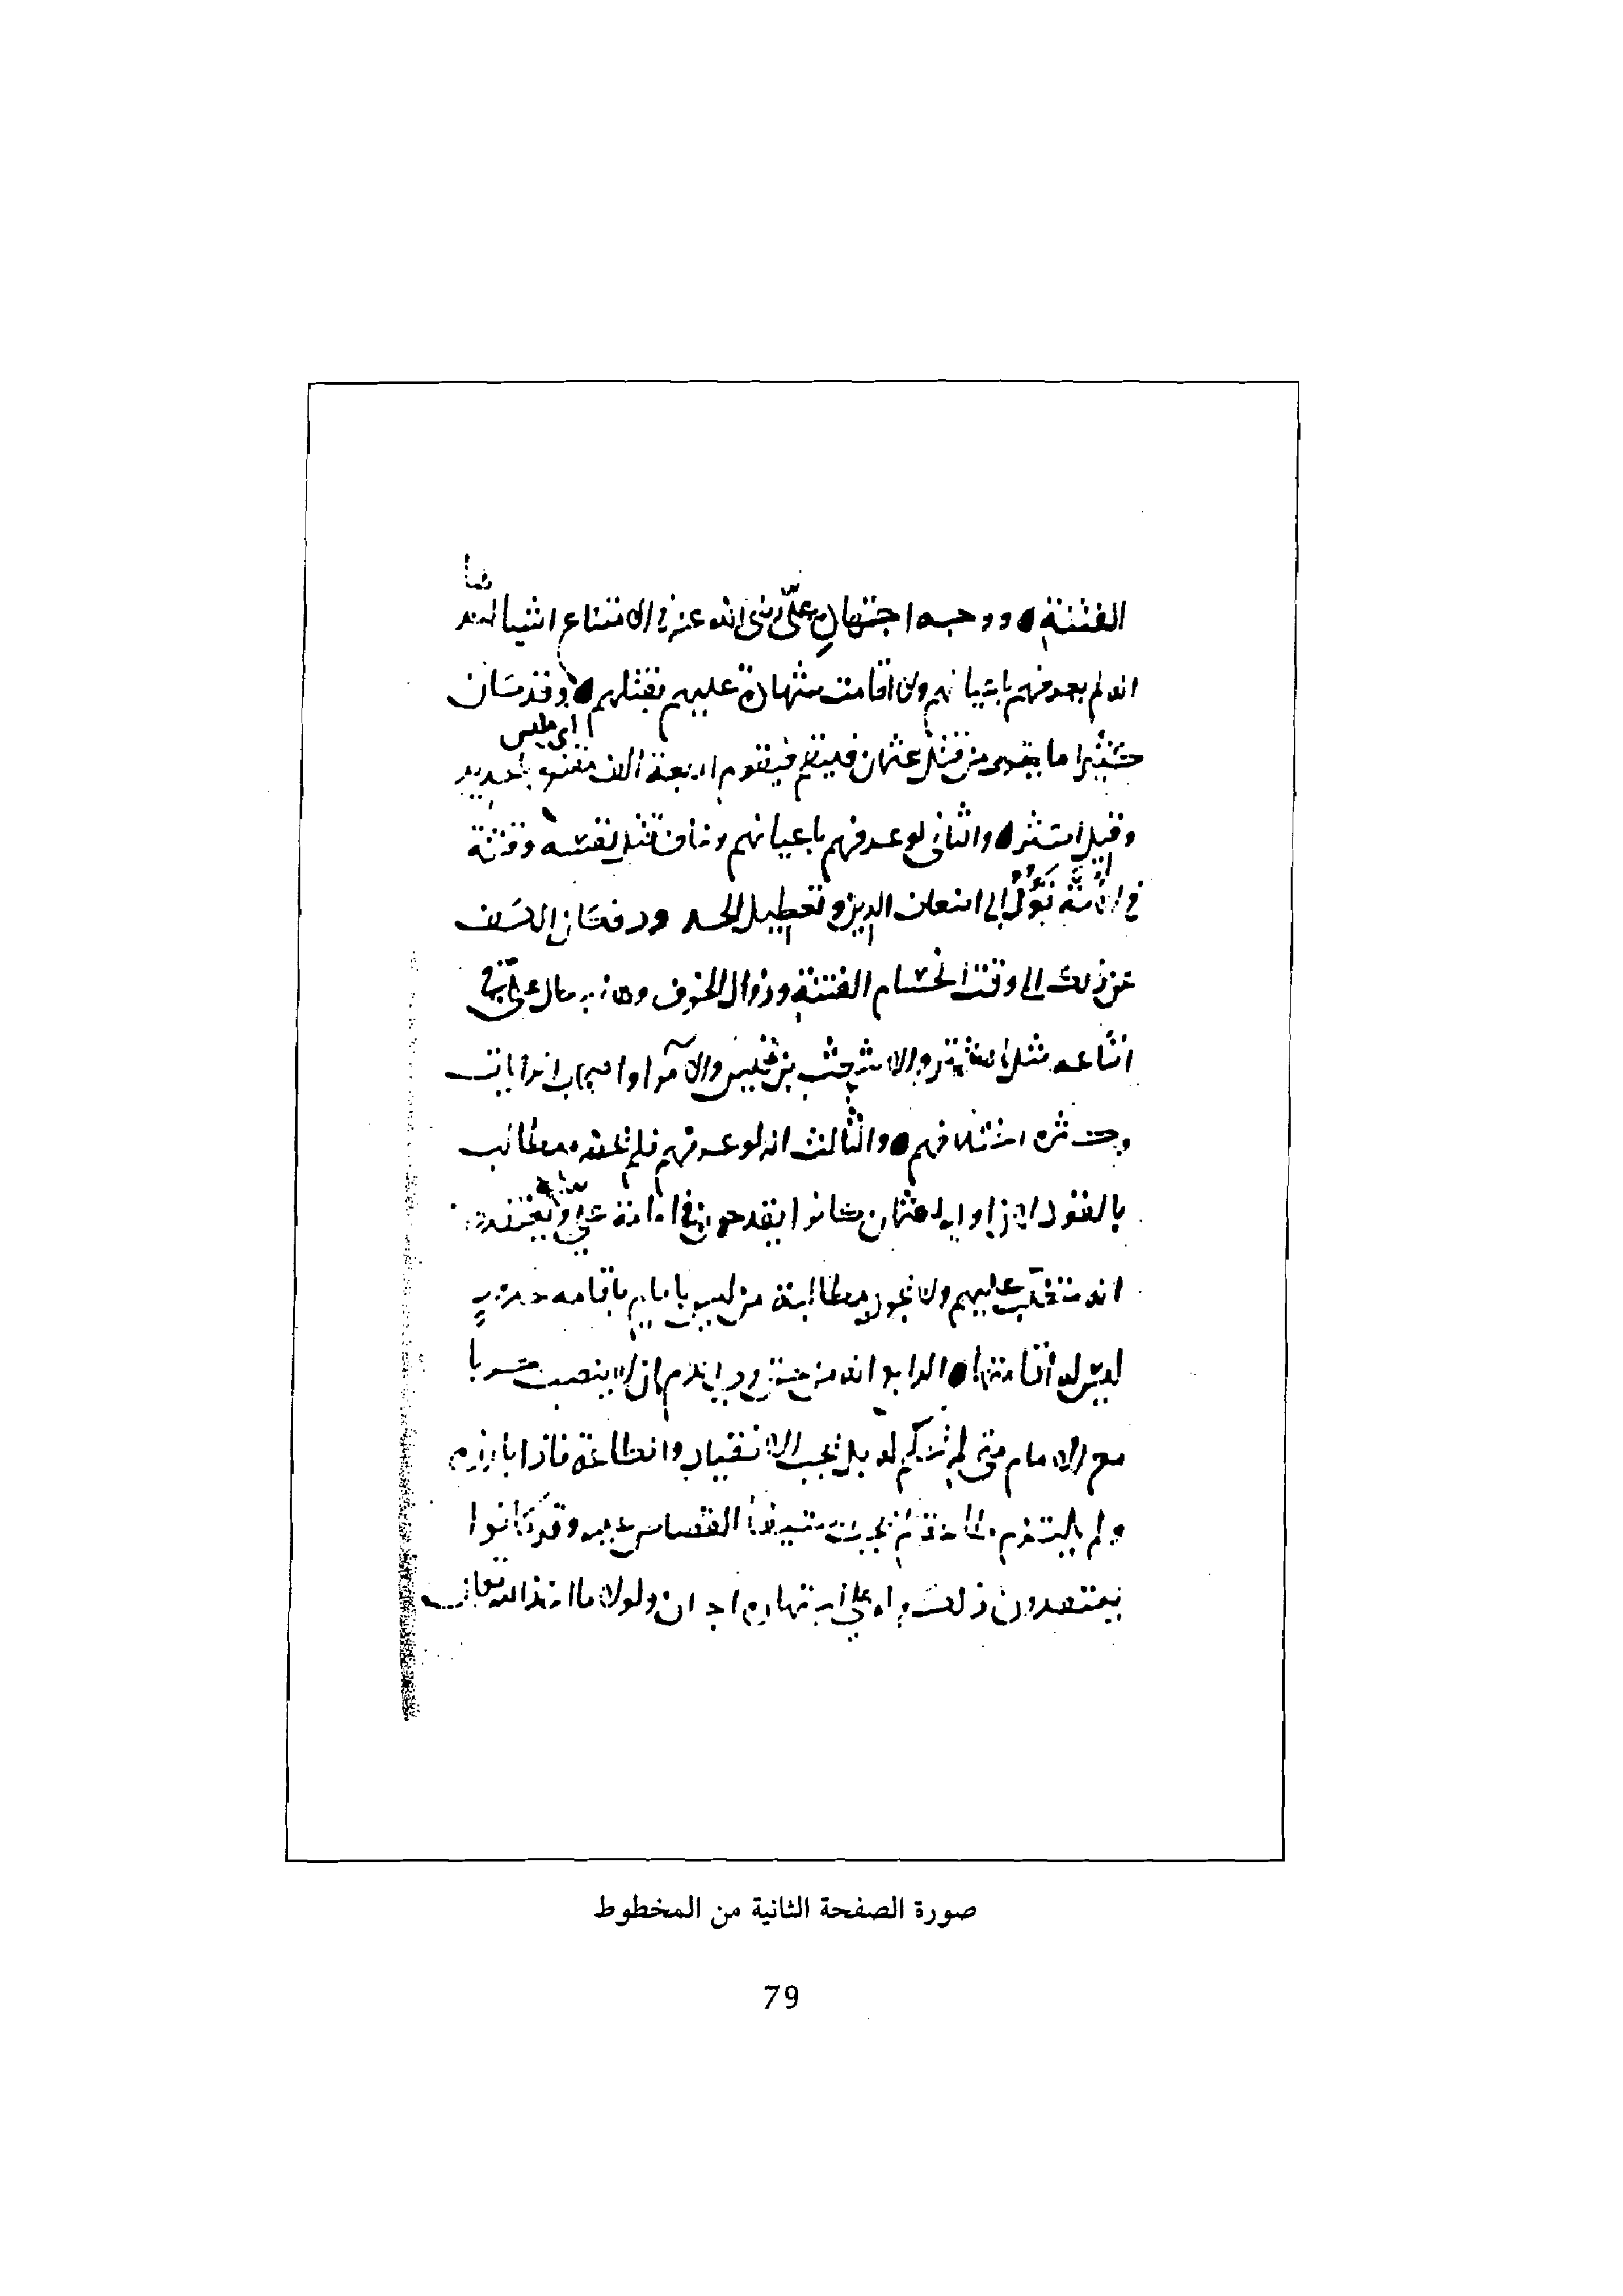 الفتنة ووجه اجتهاد علي رضي الله عنه في الامتناع اشيا
انه لم يعرفهم باعيانهم ولا اقامت شهادة عليهم بقتلهم وقد كان
كثيرا ما يقول من قتلة عثمان فيقوم اربعة الف مقنع بالحديد
اي ملبس
وقيل اكثر والثاني لو عرفهم باعيانهم وخاف قتل نفسه وفتنة
في الامة تؤل الى اضعاف الدين وتعطيل الحد فكان الكف
عن ذلك الى وقت انحسام الفتنة وزوال الخوف وهذه حال علي في
اتباعه مثل الاشتر والاشعث بن قيس والامرا واصحاب الرايات
وكثرة اختلافهم والثالث انه لو عرفهم فلم تحقه مطالب
بالقود لان اوليا عثمان كانوا يقدحون في امامة علي ويعتقدون
انه متغلب عليهم ولا يجوز مطالبة من ليس بامام باقامة حد
ليس له اقامتها الرابع انه من حق ولي الدم ان لا ينصب حربا
مع الامام متى لم يحكم له بل يجب الانقياد والطاعة فاذا بارزه
ولم يلتزم طاعة لم يجب استيفا القصاص عنه وقد كانوا
يعتقدون ذلك ولولا ما اخذ الله تعالى
صورة الصفحة الثانية من المخطوط
79